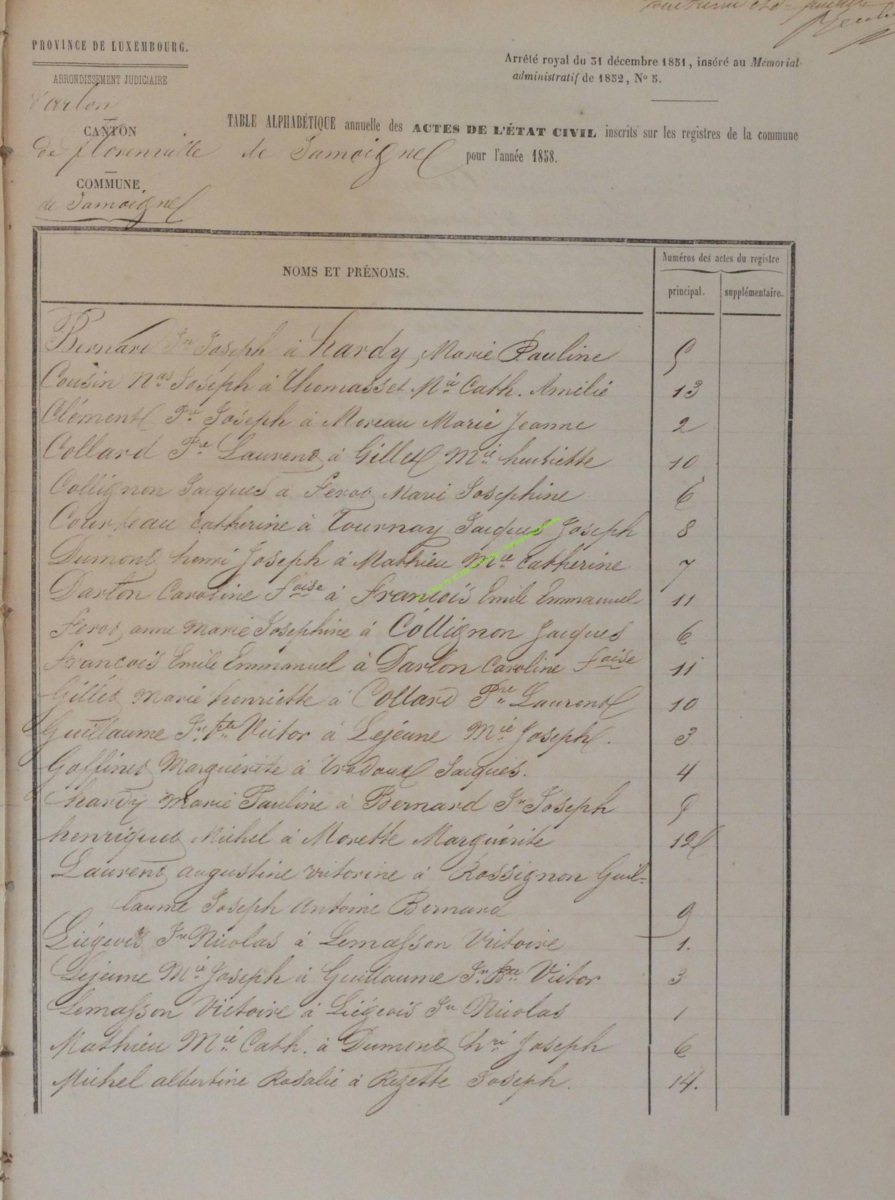 PROVINCE DE LUXEMBOURG.
ARRONDISSEMENT JUDICIAIRE
d'arlon
CANTON
de florenville
COMMUNE
de Jamoigne
Arrêté royal du 31 décembre 1851, inséré au Mémorial
administratif de 1852, No 5.
TABLE ALPHABÉTIQUE annuelle des ACTES DE L'ÉTAT CIVIL inscrits sur les registres de la commune
de Jamoigne pour l'année 1858.
NOMS ET PRÉNOMS.
Numéros des actes du registre
principal. supplémentaire.
Bernard Jn Joseph à hardy Marie Pauline 5
Cousin Nas Joseph à Thomasset Mie Cath. Amélie 13
Clément Pre Joseph à Moreau Marie Jeanne 2
Collard Pre Laurent à Gillet Mie henriette 10
Collignon Jacques à Ferot Marie Josephine 6
Courteau Catherine à Tournay Jacques Joseph 8
Dumont henri Joseph à Mathieu Mie Catherine 7
Darlon Caroline Foise à François Emile Emmanuel 11
Ferot anne Marie Josephine à Collignon Jacques 6
François Emile Emmanuel à Darlon Caroline Foise 11
Gillet Marie henriette à Collard Pre Laurent 10
Guillaume Jn Bte Victor à Lejeune Mie Joseph. 3
Goffinet Marguérite à Jacques. 4
hardy Marie Pauline à Bernard Jn Joseph 5
henriquet Michel à Morette Marguérite 12
Laurent augustine victorine à Rossignon Guil-
laume Joseph Antoine Bernard 9
Liégeois Jn Nicolas à Lemasson Victoire 1.
Lejeune Mie Joseph à Guillaume Jn Bte Victor 3
Lemasson Victoire à Liégeois Jn Nicolas 1
Mathieu Mie Cath. à Dumont hri Joseph 6
Michel albertine Rosalie à Rezette Joseph. 14.